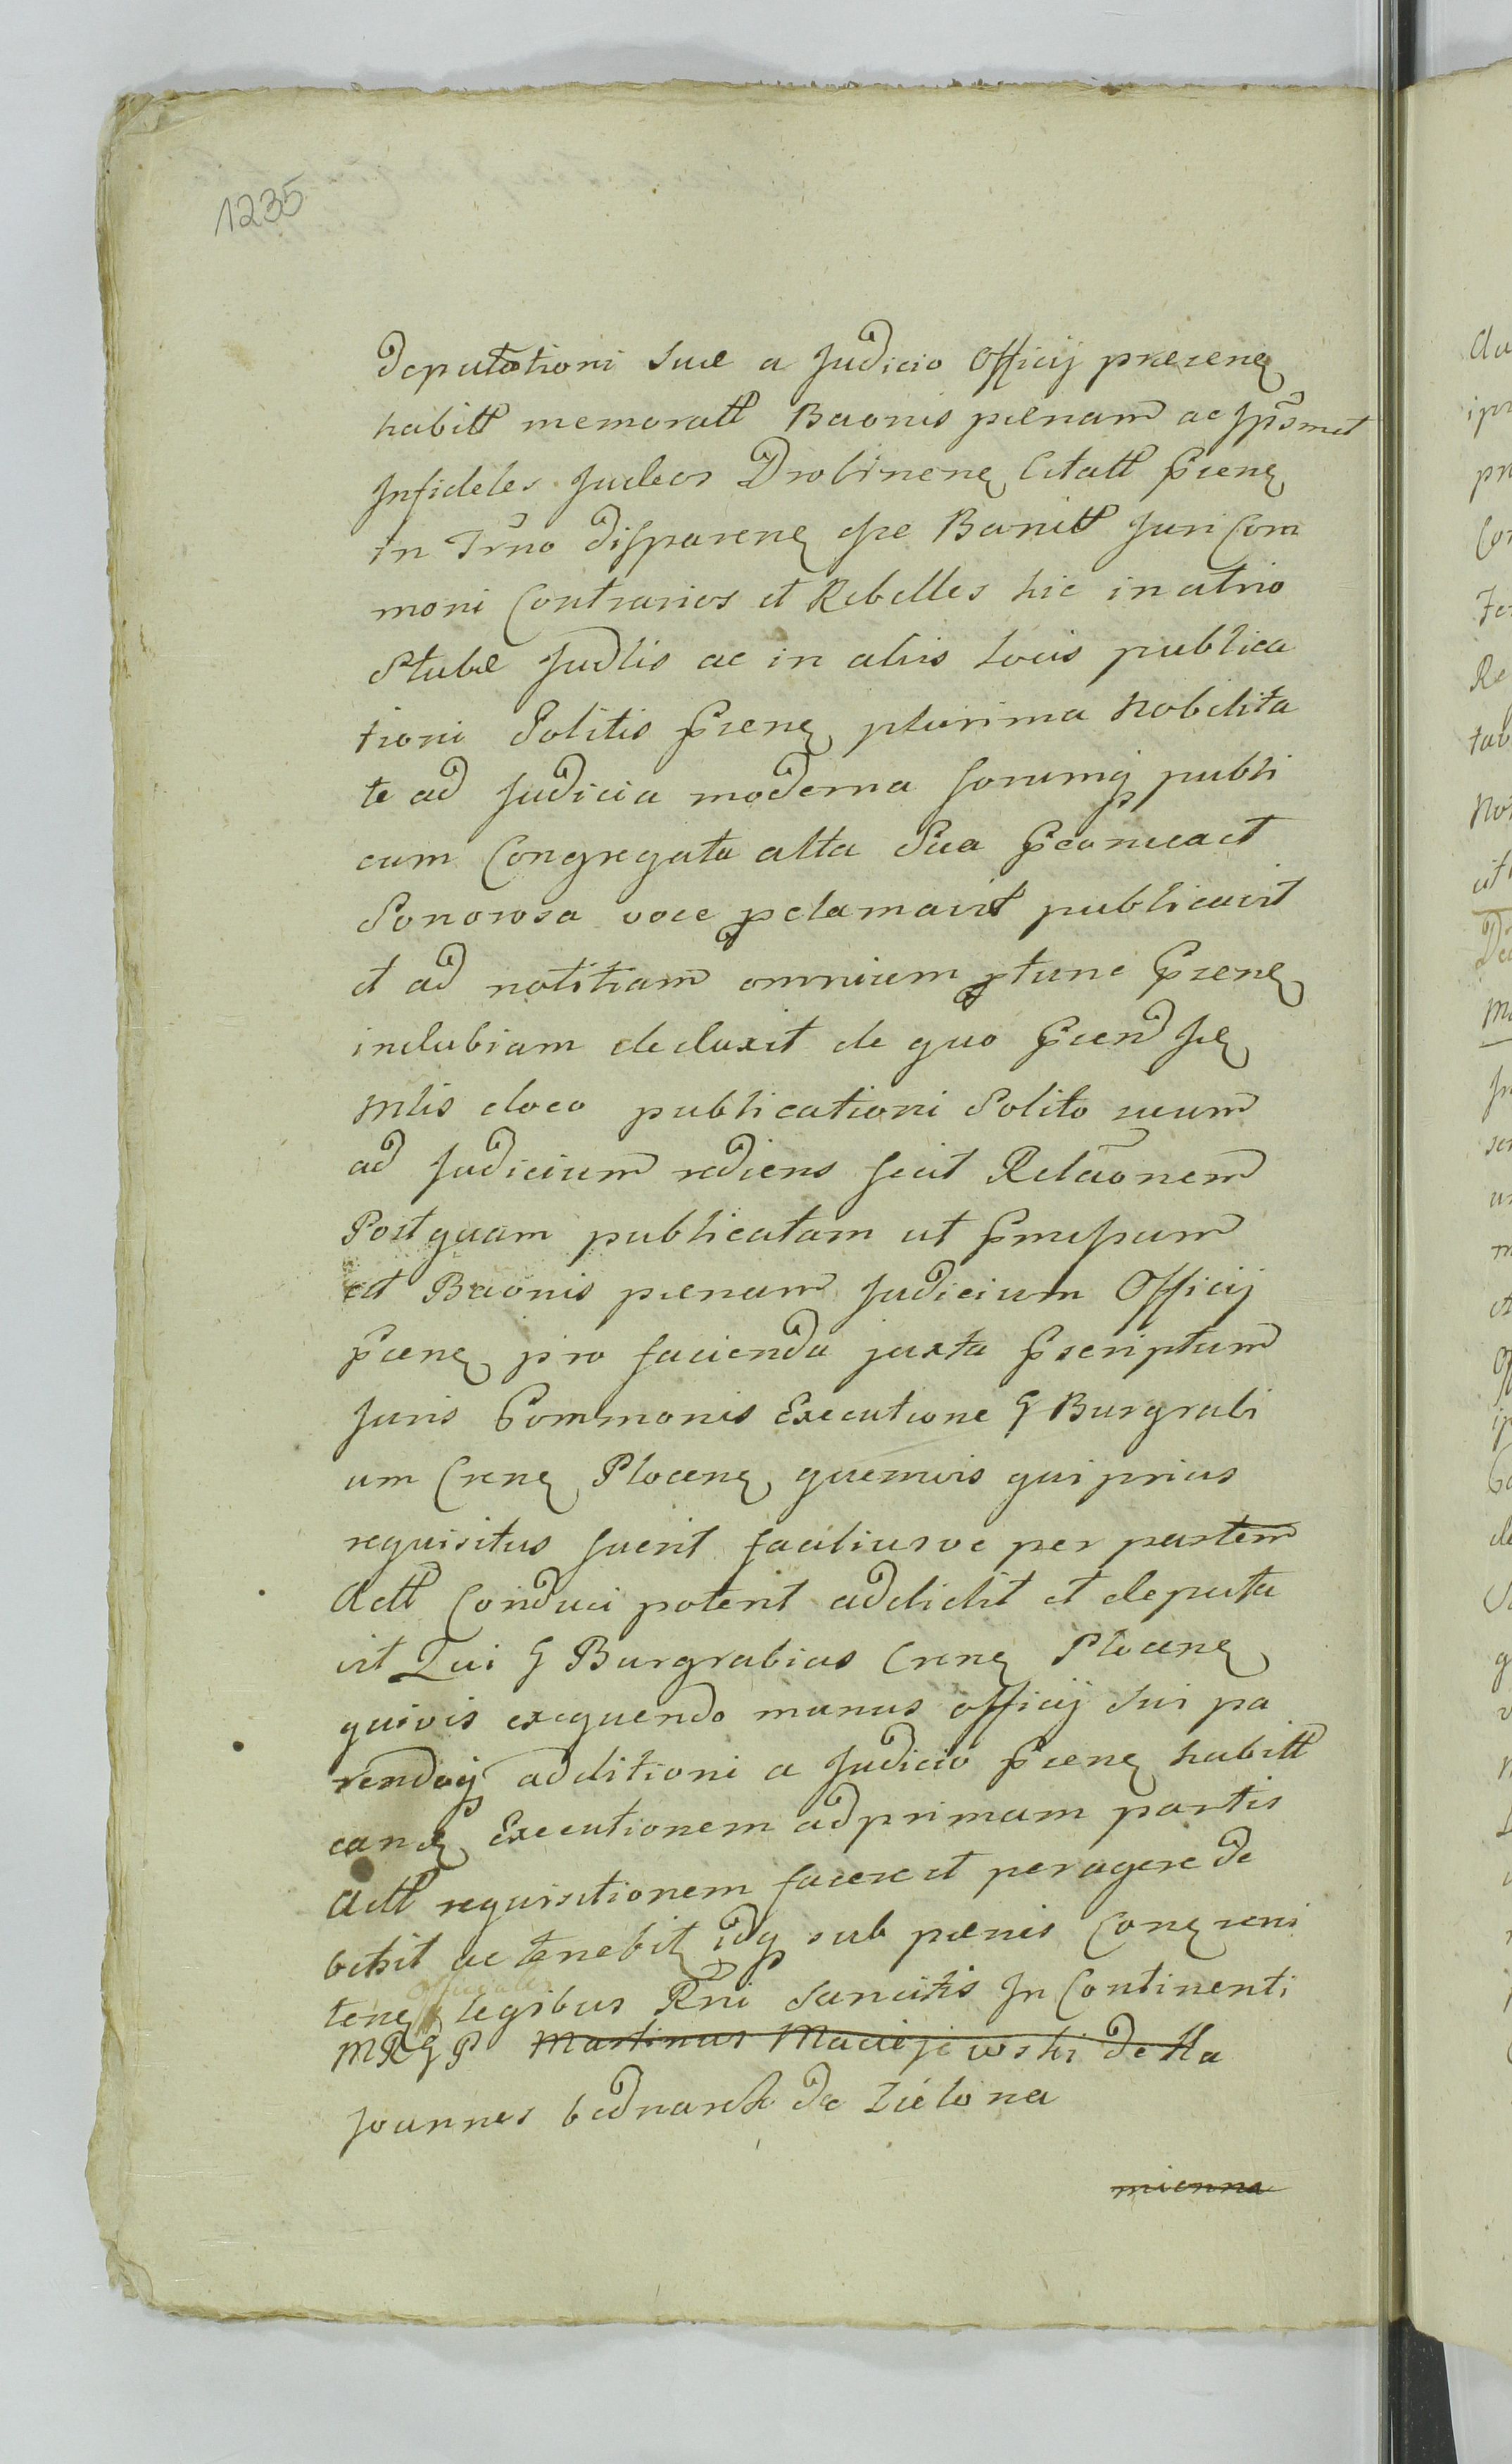 1235
Deputationi suæ a Judicio Officij præsenę
habitt memoratt Baonis pænam ac Jpsmet
Jnfideles Judeos Drobinenę Citatt Prenę
in Trno disparenę Banitt Juri Com
moni Contrarios et Rebelles hic in atrio
Stubæ Judlis ac in aliis locis publica
tioni Solitis Prenę plurima Nobilita
te ad Judicia moderna forumq publi
cum Congregata alta Sua et
Sonorosa voce pclamavit publicavit
et ad notitiam omnium ptunc Prenę
indubiam deduxit de quo
Mlis eloco publicationi Solito suum
ad Judicium rediens fecit Relaonem
Post quam publicatam ut Pmissum
est Baonis pænam Judicium Officij
Prenę pro facienda juxta Prscriptum
Juris Commonis Executione G Burgrabi
um Crenę Plocenę quemvis qui prius
requisitus fuerit faciliusve per partem
Actt Conduci poterit addidit et deputa
vit Qui G Burgrabius Crenę Plocenę
quivis exequendo munus officij sui pa
rendoq additioni a Judicio Prenę habitt
eandę Executionem ad primam partis
Actt requisitionem facere et peragere de
bebit ac tenebitę idq sub pænis Conę
tenę officiales legibus Rni sancitis Jn Continenti
MRGP Martinus Maciejewski de Ka
Joannes bednarek de Zielona
mienna